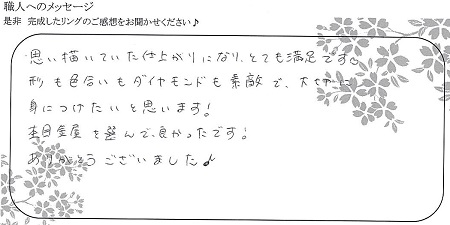 職人へのメッセージ
是非 完成したリングのご感想をお聞かせください♪
思い描いていた仕上がりになり、とても満足です♡
形も色合いもダイヤモンドも素敵で、大切に
身につけたいと思います!
杢目金屋を選んで良かったです!
ありがとうございました♪